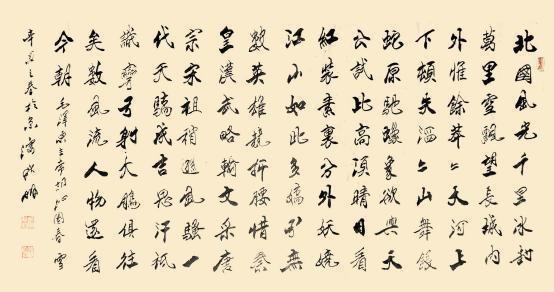 北國風光千里冰封
萬里雪飄望長城內
外惟餘莽々大河上
下頓失滔々山舞銀
蛇原馳蠟象欲與天
公試比高須晴日看
紅裝素裹分外妖嬈
江山如此多嬌引無
數英雄競折腰惜秦
皇漢武略輸文采唐
宗宋祖稍遜風騷一
代天驕成吉思汗祇
識彎弓射大雕俱往
矣數風流人物還看
今朝 毛澤東主席詞沁園春雪
之春於京